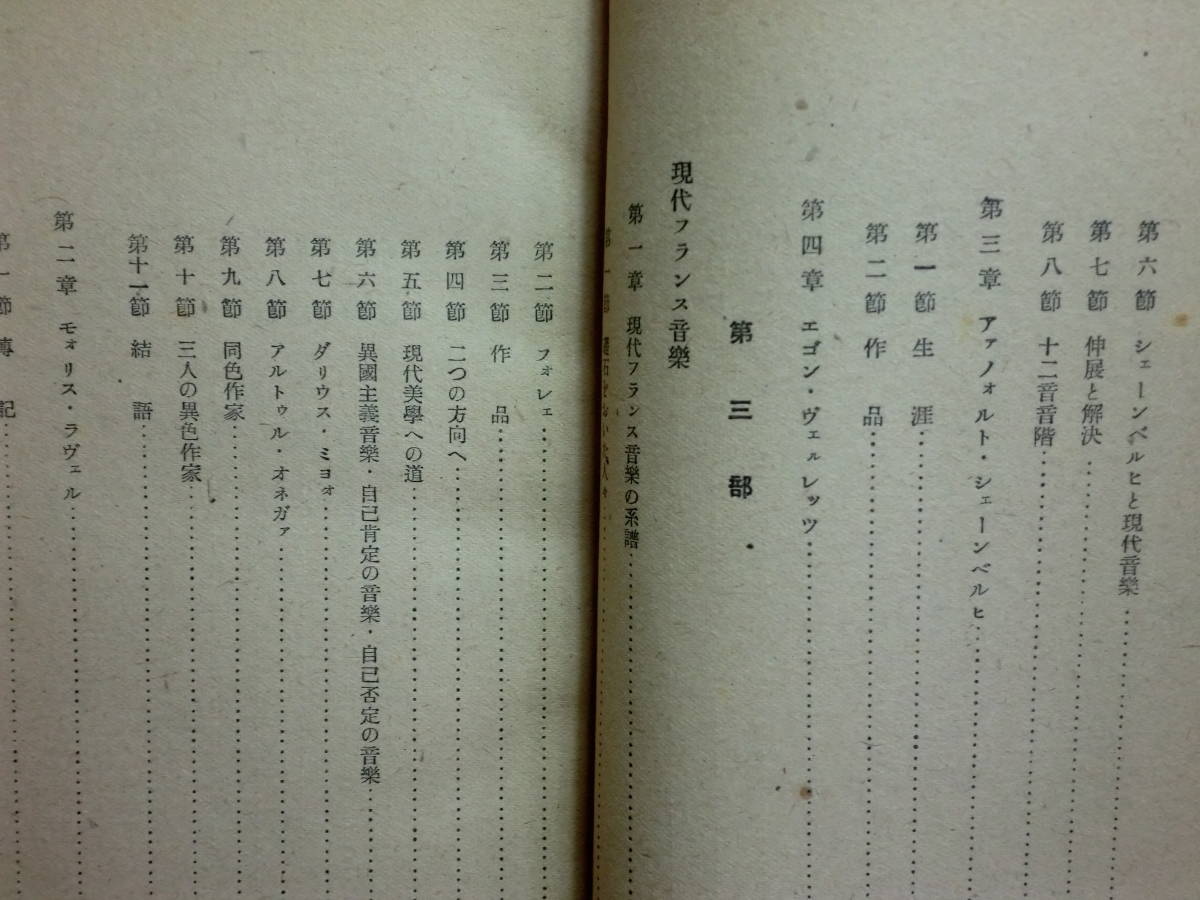 第六節 シェーンベルヒと現代音樂
第七節 伸展と解決
第八節 十二音音階
第三章 アァノォルト・シェーンベルヒ
第一節 生涯
第二節 作品
第四章 エゴン・ヴェルレッツ
第三部
現代フランス音樂
第一章 現代フランス音樂の系譜
第一節 礎石をおいた人々
第二節 フォレェ
第三節 作品
第四節 二つの方向へ
第五節 現代美學への道
第六節 異國主義音樂・自己肯定の音樂・自己否定の音樂
第七節 ダリウス・ミヨォ
第八節 アルトゥル・オネガァ
第九節 同色作家
第十節 三人の異色作家
第十一節 結語
第二章 モォリス・ラヴェル
第一節 傳記